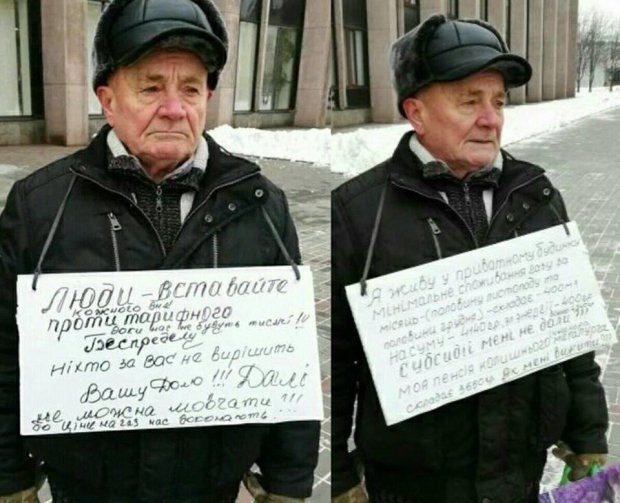 Люди - вставайте
кожного дня
проти тарифного
боки нас не будуть тисячі!!!
Беспределу
Ніхто за вас не вирішить
Вашу долю!!! Далі
не можна мовчати!!!
бо ціни на газ нас доконають...
Я живу у приватному будинку
мінімальне споживання газу за
місяць - (половину листопаду та
половини грудня) - складає 400м³
на суму -
Субсидії мені не дали ???
моя пенсія колишнього металурга
складає Як мені вижити !!!